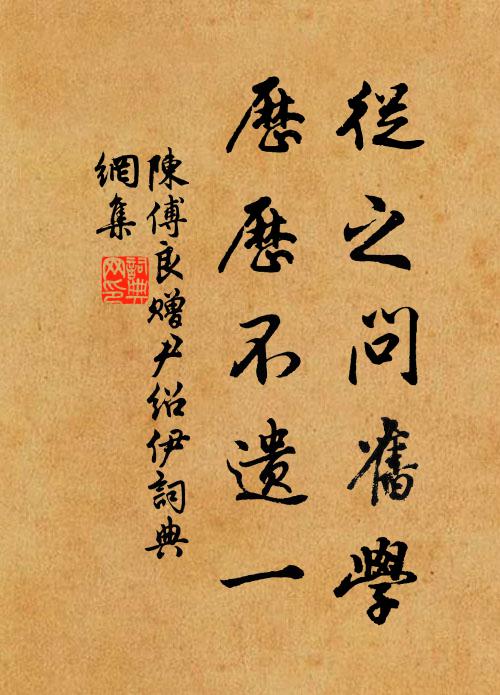 從之問舊學
歷歷不遺一
陳傅良贈尹紹伊詞典
網集
詞典
网印